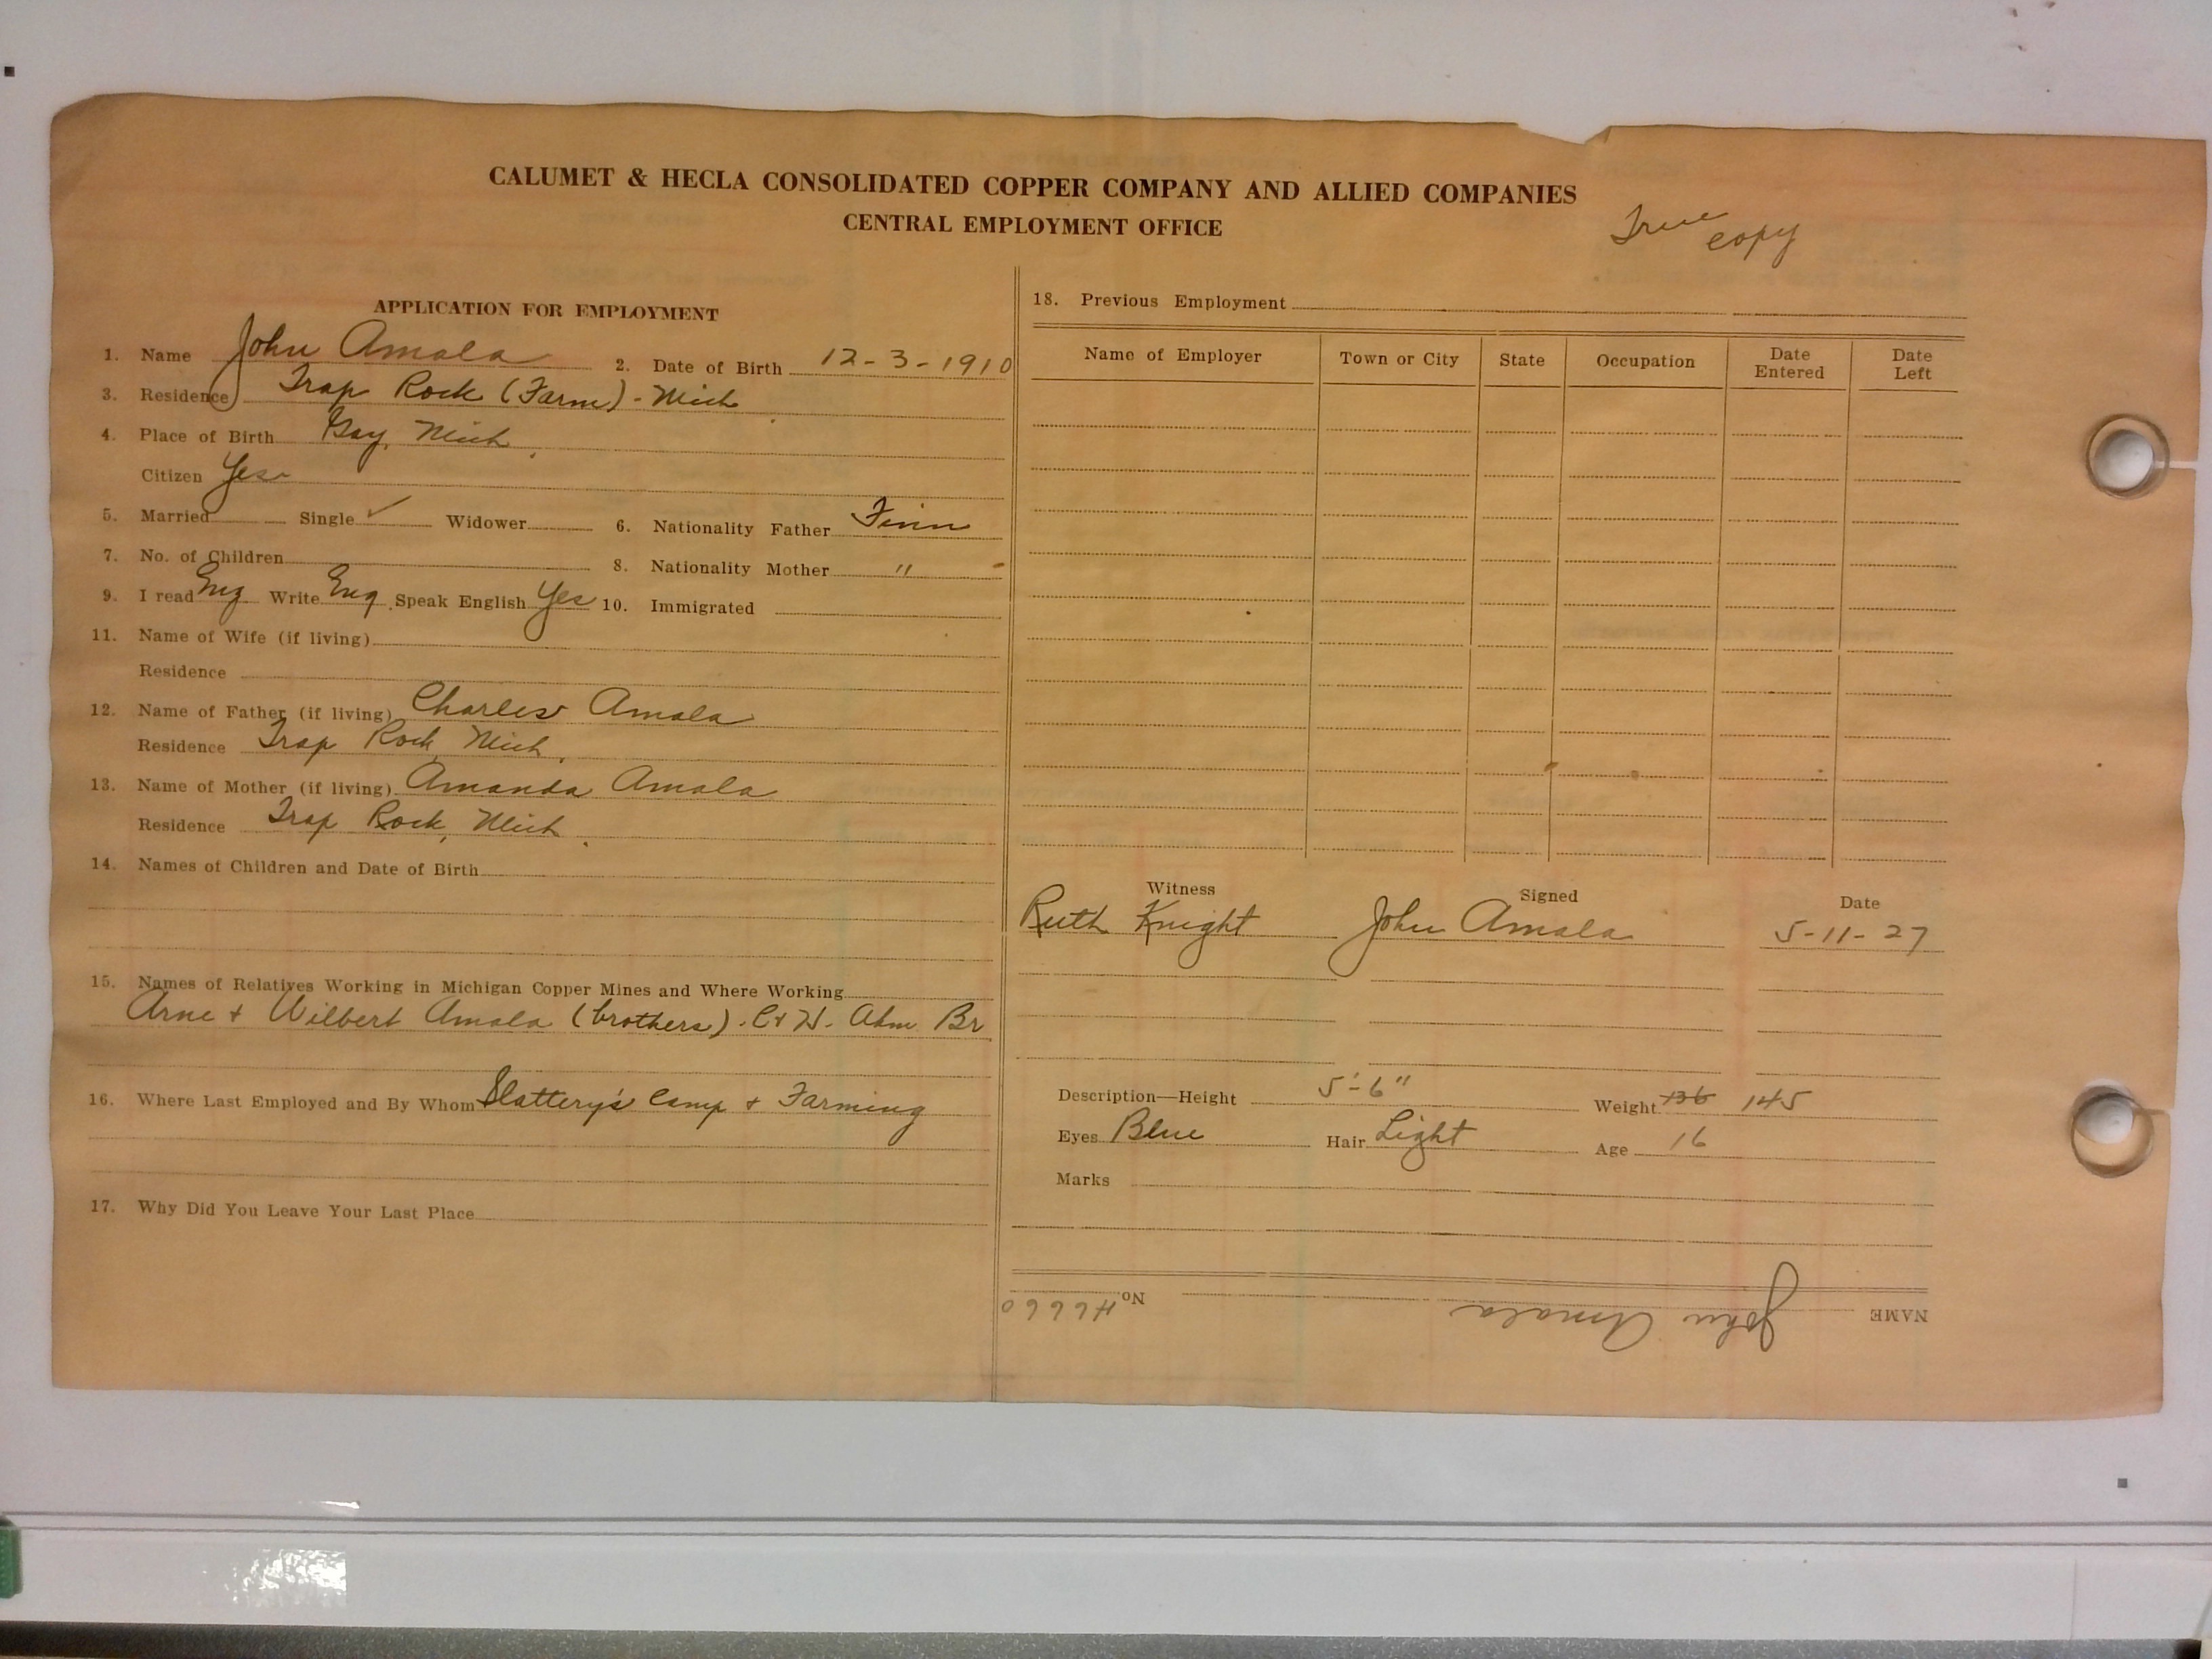 CALUMET & HECLA CONSOLIDATED COPPER COMPANY AND ALLIED COMPANIES
CENTRAL EMPLOYMENT OFFICE
True copy
APPLICATION FOR EMPLOYMENT
1. Name John Amala 2. Date of Birth 12-3-1910
3. Residence Trap Rock (Farm) - Mich
4. Place of Birth Gay, Mich.
Citizen Yes
5. Married Single ✓ Widower 6. Nationality Father Finn
7. No. of Children 8. Nationality Mother "
9. I read Eng Write Eng. Speak English Yes 10. Immigrated
11. Name of Wife (if living)
Residence
12. Name of Father (if living) Charles Amala
Residence Trap Rock, Mich.
13. Name of Mother (if living) Amanda Amala
Residence Trap Rock, Mich.
14. Names of Children and Date of Birth
15. Names of Relatives Working in Michigan Copper Mines and Where Working
Arne + Wilbert Amala (brothers). C + H. Ahm Br
16. Where Last Employed and By Whom Slattery's Camp + Farming
17. Why Did You Leave Your Last Place
18. Previous Employment
Name of Employer Town or City State Occupation Date Entered Date Left
Witness Signed Date
Ruth Knight John Amala 5-11-27
Description—Height 5'-6" Weight 136 145
Eyes Blue Hair Light Age 16
Marks
NAME John Amala No. H6660